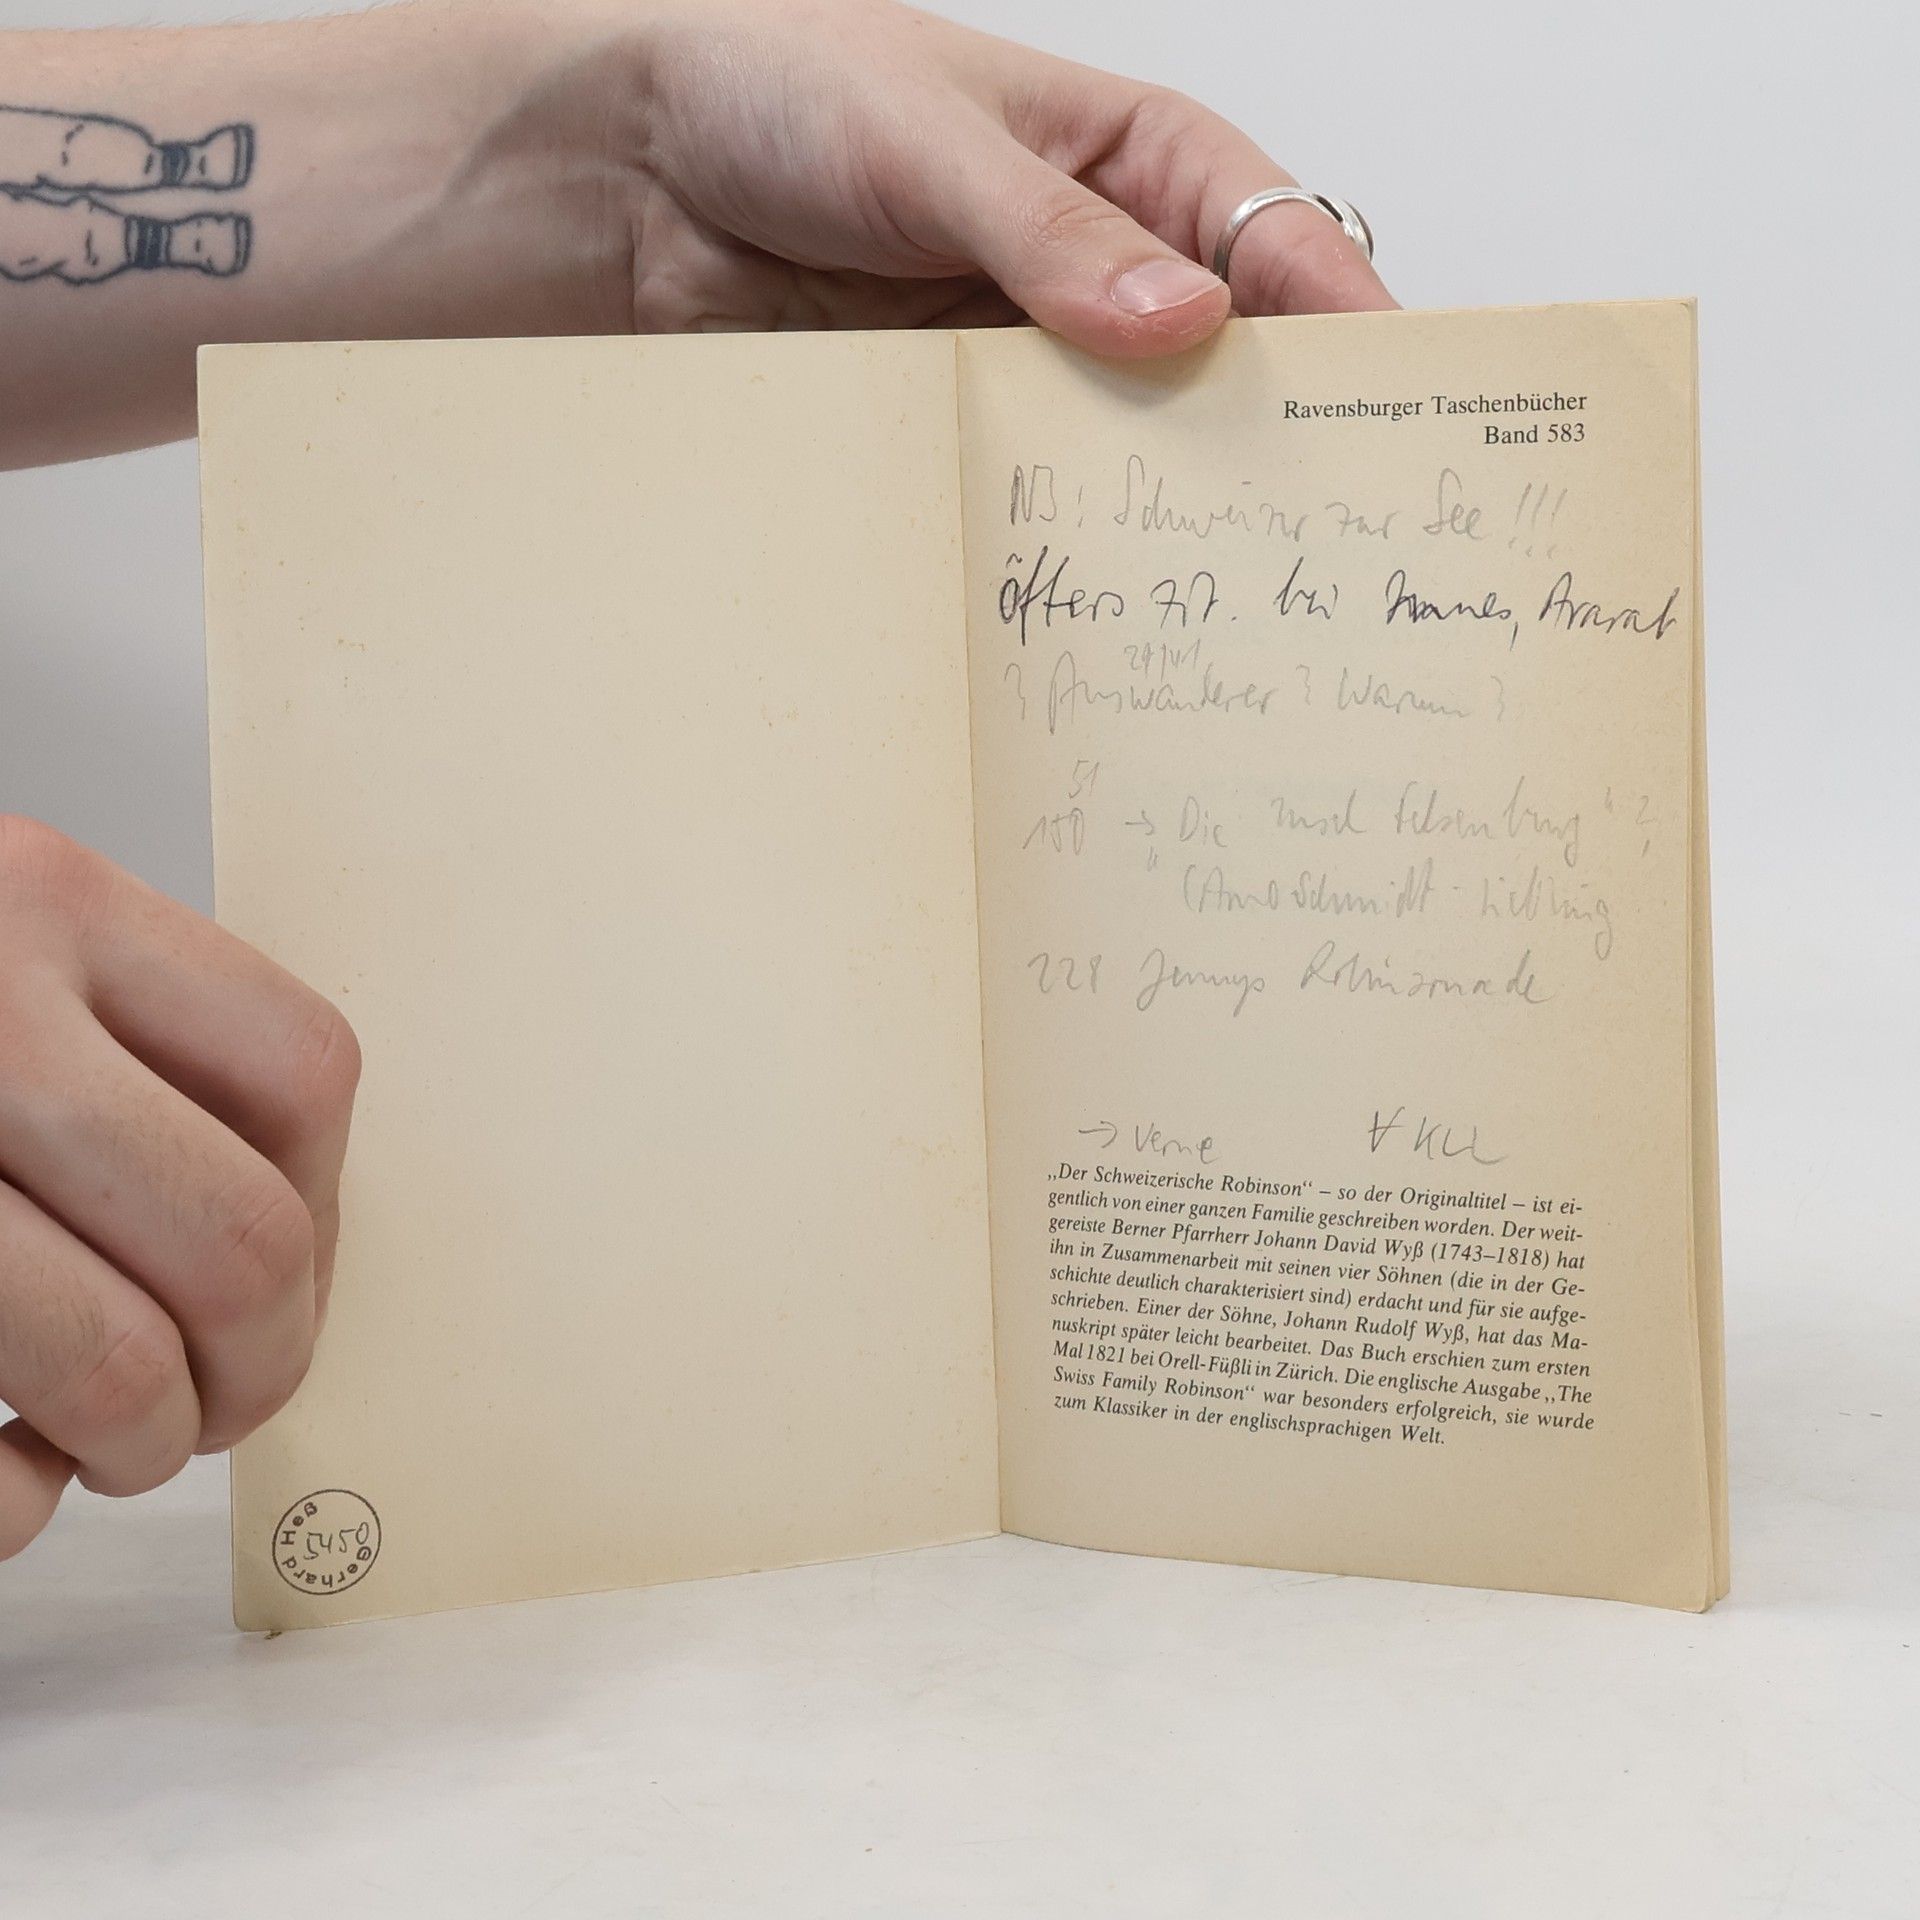 Ravensburger Taschenbücher
Band 583
NB! Schweizer zur See!!!
öfters zit. bei Ararat
? Auswanderer ? Warum ?
51
150 → „Die Insel Felsenburg“ ?
(Arno Schmidt - Liebling
228 Jennys Robinsonade
→ Verne
KLL
„Der Schweizerische Robinson“ – so der Originaltitel – ist ei-
gentlich von einer ganzen Familie geschreiben worden. Der weit-
gereiste Berner Pfarrherr Johann David Wyß (1743–1818) hat
ihn in Zusammenarbeit mit seinen vier Söhnen (die in der Ge-
schichte deutlich charakterisiert sind) erdacht und für sie aufge-
schrieben. Einer der Söhne, Johann Rudolf Wyß, hat das Ma-
nuskript später leicht bearbeitet. Das Buch erschien zum ersten
Mal 1821 bei Orell-Füßli in Zürich. Die englische Ausgabe „The
Swiss Family Robinson“ war besonders erfolgreich, sie wurde
zum Klassiker in der englischsprachigen Welt.
Gerhard Heß
5450